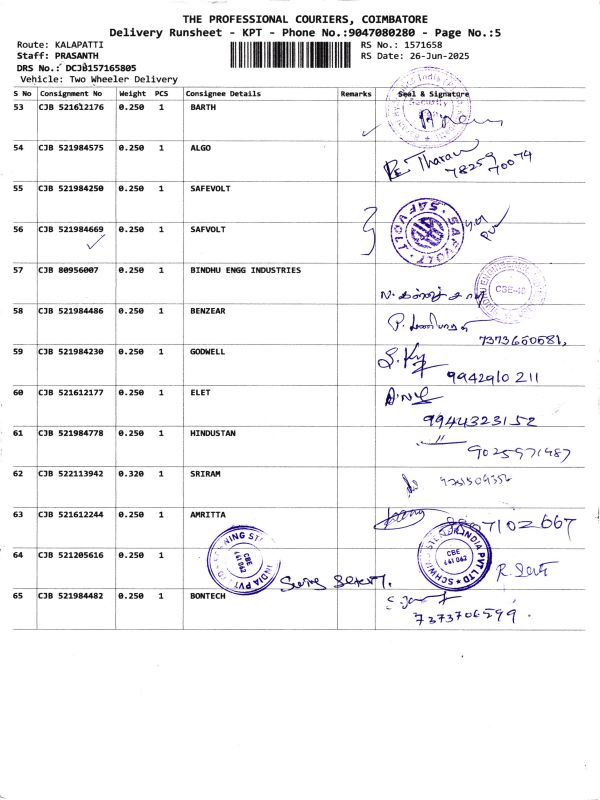 THE PROFESSIONAL COURIERS, COIMBATORE
Delivery Runsheet - KPT - Phone No.:9047080280 - Page No.:5
Route: KALAPATTI RS No.: 1571658
Staff: PRASANTH RS Date: 26-Jun-2025
DRS No.: DCJB157165805
Vehicle: Two Wheeler Delivery
S No Consignment No Weight PCS Consignee Details Remarks Seal & Signature
53 CJB 521612176 0.250 1 BARTH
Security
54 CJB 521984575 0.250 1 ALGO
Tharan
78259
70074
55 CJB 521984250 0.250 1 SAFEVOLT
SAFVOLT · SAFVOLT
56 CJB 521984669 0.250 1 SAFVOLT
57 CJB 80956007 0.250 1 BINDHU ENGG INDUSTRIES
58 CJB 521984486 0.250 1 BENZEAR
7373660581,
59 CJB 521984230 0.250 1 GODWELL
9942910 211
60 CJB 521612177 0.250 1 ELET
9944323152
61 CJB 521984778 0.250 1 HINDUSTAN
9025971487
62 CJB 522113942 0.320 1 SRIRAM
63 CJB 521612244 0.250 1 AMRITTA
7102667
64 CJB 521205616 0.250 1
CBE
641 062
INDIA PVT LTD
SCHWING STETTER INDIA PVT LTD
CBE
641 062
65 CJB 521984482 0.250 1 BONTECH
7373706599.